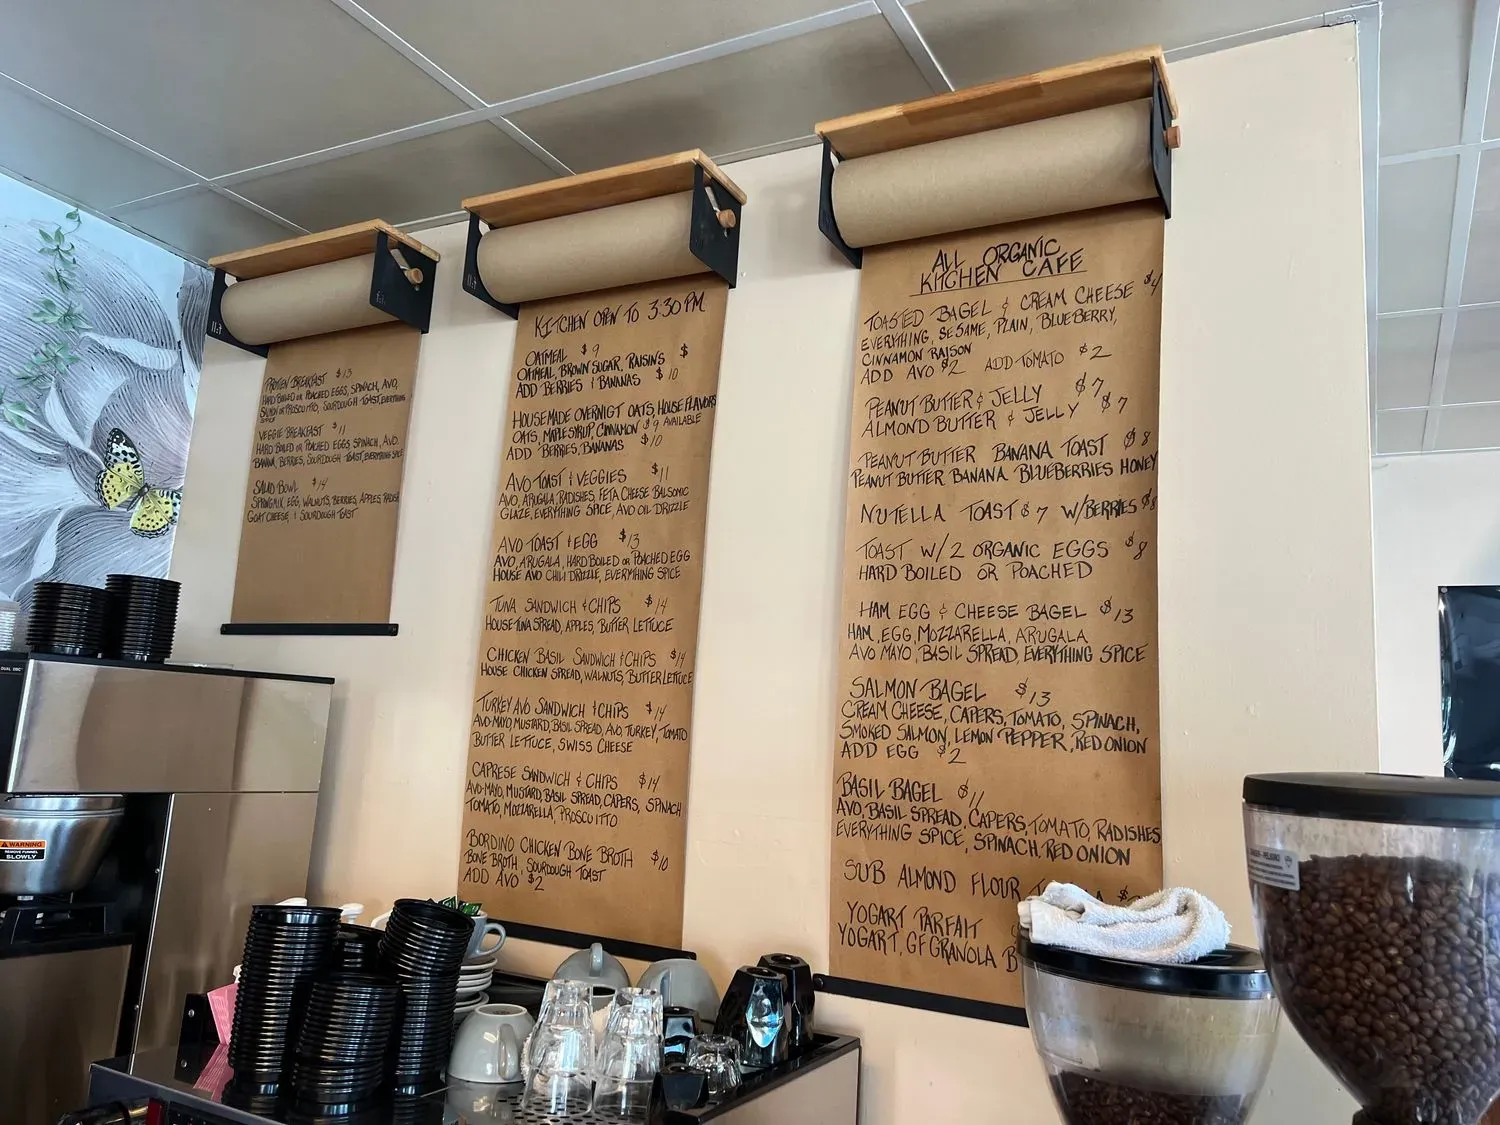 PROTEIN BREAKFAST $13
HARD BOILED OR POACHED EGGS, SPINACH, AVO,
SALMON OR PROSCUITTO, SOURDOUGH TOAST, EVERYTHING
SPICE
VEGGIE BREAKFAST $11
HARD BOILED OR POACHED EGGS SPINACH, AVO.
BANANA, BERRIES, SOURDOUGH TOAST, EVERYTHING SPICE
SALAD BOWL $14
SPRING MIX, EGG, WALNUTS, BERRIES, APPLES, RADISH
GOAT CHEESE, & SOURDOUGH TOAST
KITCHEN OPEN TO 3:30 PM
OATMEAL $9
OATMEAL, BROWN SUGAR, RAISIN'S $
ADD BERRIES & BANANAS $10
HOUSEMADE OVERNIGT OATS, HOUSE FLAVORS
OATS, MAPLE SYRUP, CINNAMON $9 AVAILABLE
ADD BERRIES, BANANAS $10
AVO TOAST & VEGGIES $11
AVO, ARUGALA, RADISHES, FETA CHEESE BALSOMIC
GLAZE, EVERYTHING SPICE, AVO OIL DRIZZLE
AVO TOAST & EGG $13
AVO, ARUGALA, HARD BOILED OR POACHED EGG
HOUSE AVO CHILI DRIZZLE, EVERYTHING SPICE
TUNA SANDWICH & CHIPS $14
HOUSE TUNA SPREAD, APPLES, BUTTER LETTUCE
CHICKEN BASIL SANDWICH & CHIPS $14
HOUSE CHICKEN SPREAD, WALNUTS, BUTTER LETTUCE
TURKEY AVO SANDWICH & CHIPS $14
AVO-MAYO, MUSTARD, BASIL SPREAD, AVO TURKEY, TOMATO
BUTTER LETTUCE, SWISS CHEESE
CAPRESE SANDWICH & CHIPS $14
AVO-MAYO, MUSTARD, BASIL SPREAD, CAPERS, SPINACH
TOMATO, MOZZARELLA, PROSCUITTO
BORDINO CHICKEN BONE BROTH $10
BONE BROTH, SOURDOUGH TOAST
ADD AVO $2
ALL ORGANIC
KITCHEN CAFE
TOASTED BAGEL & CREAM CHEESE $4
EVERYTHING, SESAME, PLAIN, BLUEBERRY,
CINNAMON RAISON
ADD AVO $2 ADD TOMATO $2
PEANUT BUTTER & JELLY $7
ALMOND BUTTER & JELLY $7
PEANUT BUTTER BANANA TOAST $8
PEANUT BUTTER BANANA BLUEBERRIES HONEY
NUTELLA TOAST $7 W/BERRIES $8
TOAST W/2 ORGANIC EGGS $8
HARD BOILED OR POACHED
HAM EGG & CHEESE BAGEL $13
HAM, EGG, MOZZARELLA, ARUGALA
AVO MAYO, BASIL SPREAD, EVERYTHING SPICE
SALMON BAGEL $13
CREAM CHEESE, CAPERS, TOMATO, SPINACH,
SMOKED SALMON, LEMON PEPPER, RED ONION
ADD EGG $2
BASIL BAGEL $11
AVO, BASIL SPREAD, CAPERS, TOMATO, RADISHES
EVERYTHING SPICE, SPINACH, RED ONION
SUB ALMOND FLOUR
YOGART PARFAIT
YOGART, GF GRANOLA B
WARNING
SLOWLY